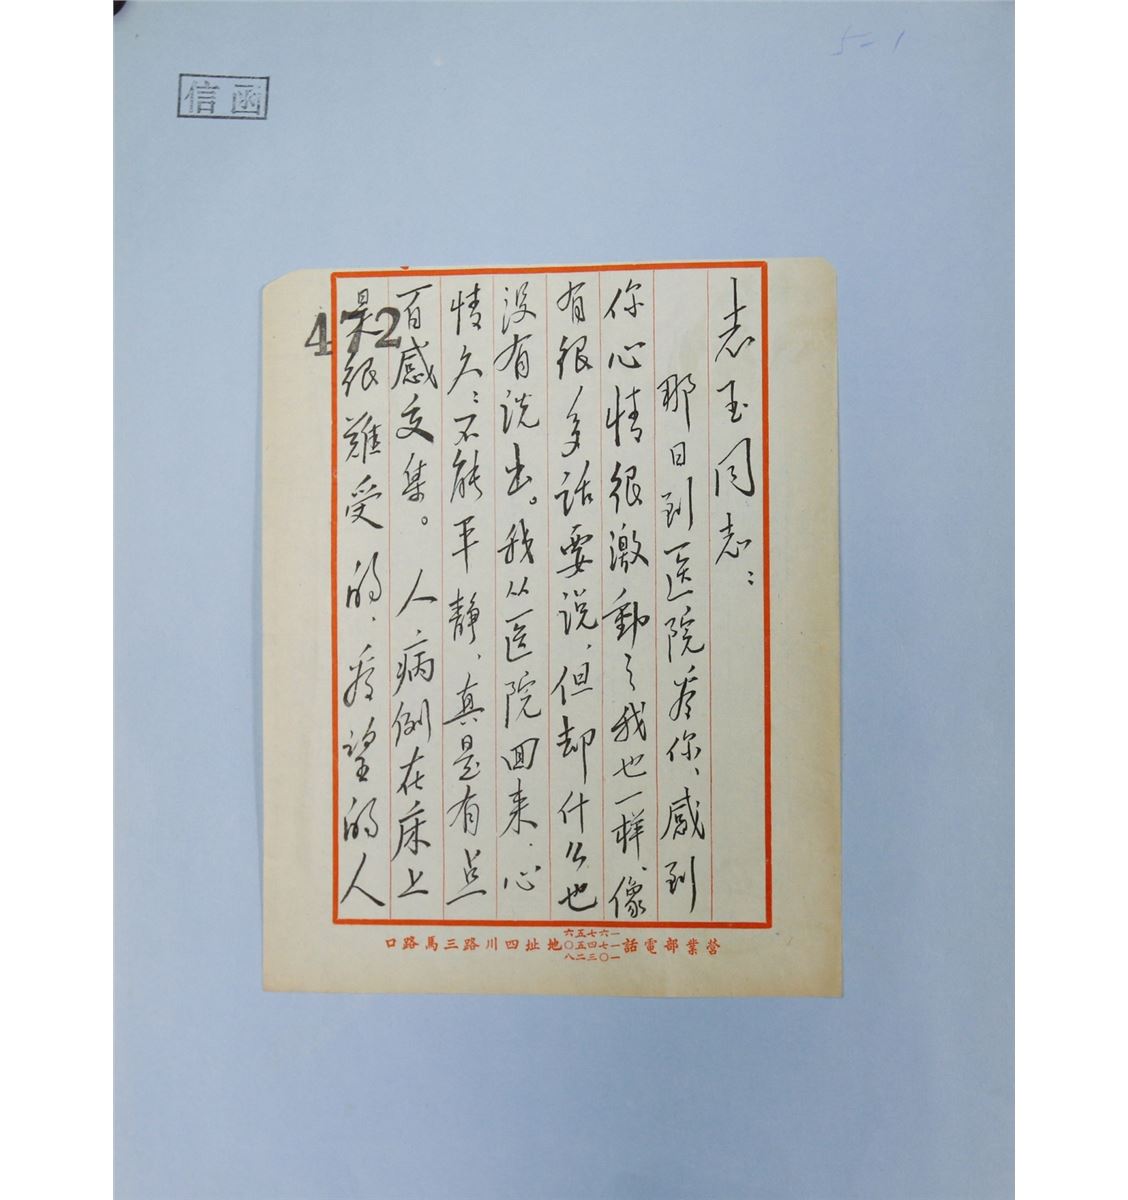 5-1
信函
472
志玉同志：
那日到医院看你、感到
你心情很激動，我也一样、像
有很多话要说、但却什么也
没有说出。我从医院回来、心
情久久不能平静、真是有点
百感交集。人、病倒在床上
是很難受的、看望的人
營業部電話 一六七五六 一七四五〇 一〇三二八 地址四川路三馬路口